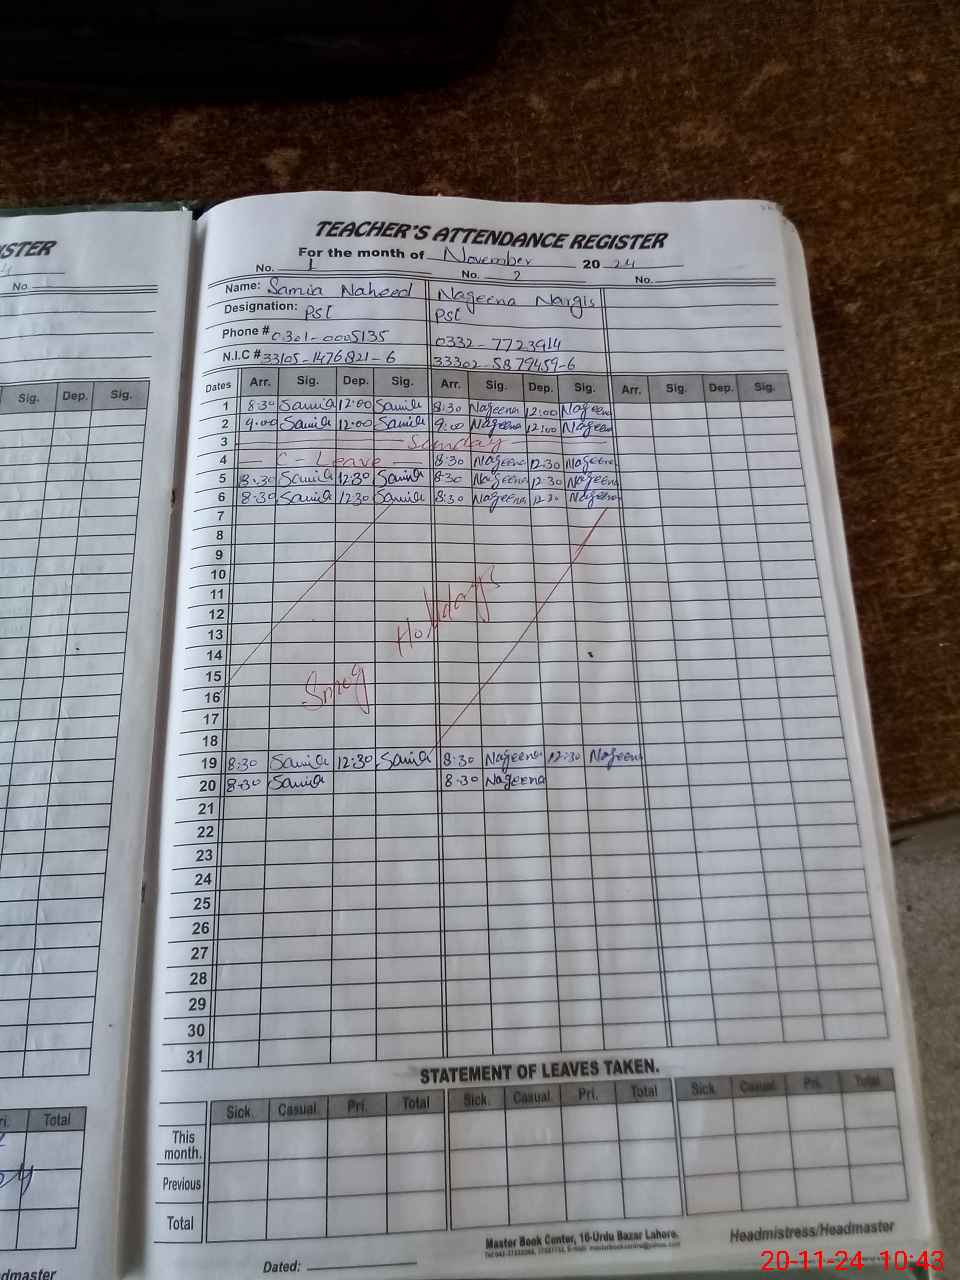 ISTER
No.
Sig. Dep. Sig.
Total
dmaster
TEACHER'S ATTENDANCE REGISTER
For the month of November 20 24
No. 1 No. 2 No.
Name: Samia Naheed Nageena Nargis
Designation: PST PST
Phone # 0301-0005135 0332-7723914
N.I.C # 33105-1476821-6 33302-5879459-6
Dates Arr. Sig. Dep. Sig. Arr. Sig. Dep. Sig. Arr. Sig. Dep. Sig.
1 8:30 Samia 12:00 Samia 8:30 Nageena 12:00 Nageena
2 9:00 Samia 12:00 Samia 9:00 Nageena 12:00 Nageena
3 Sunday
4 C-Leave 8:30 Nageena 12:30 Nageena
5 8:30 Samia 12:30 Samia 8:30 Nageena 12:30 Nageena
6 8:30 Samia 12:30 Samia 8:30 Nageena 12:30 Nageena
7
8
9
10
11
12
13
14
15
16
17
18
Smog Holidays
19 8:30 Samia 12:30 Samia 8:30 Nageena 12:30 Nageena
20 8:30 Samia 8:30 Nageena
21
22
23
24
25
26
27
28
29
30
31
STATEMENT OF LEAVES TAKEN.
Sick. Casual Pri. Total Sick. Casual Pri. Total Sick. Casual Pri. Total
This month.
Previous
Total
Master Book Center, 16-Urdu Bazar Lahore.
Headmistress/Headmaster
Dated:
20-11-24 10:43